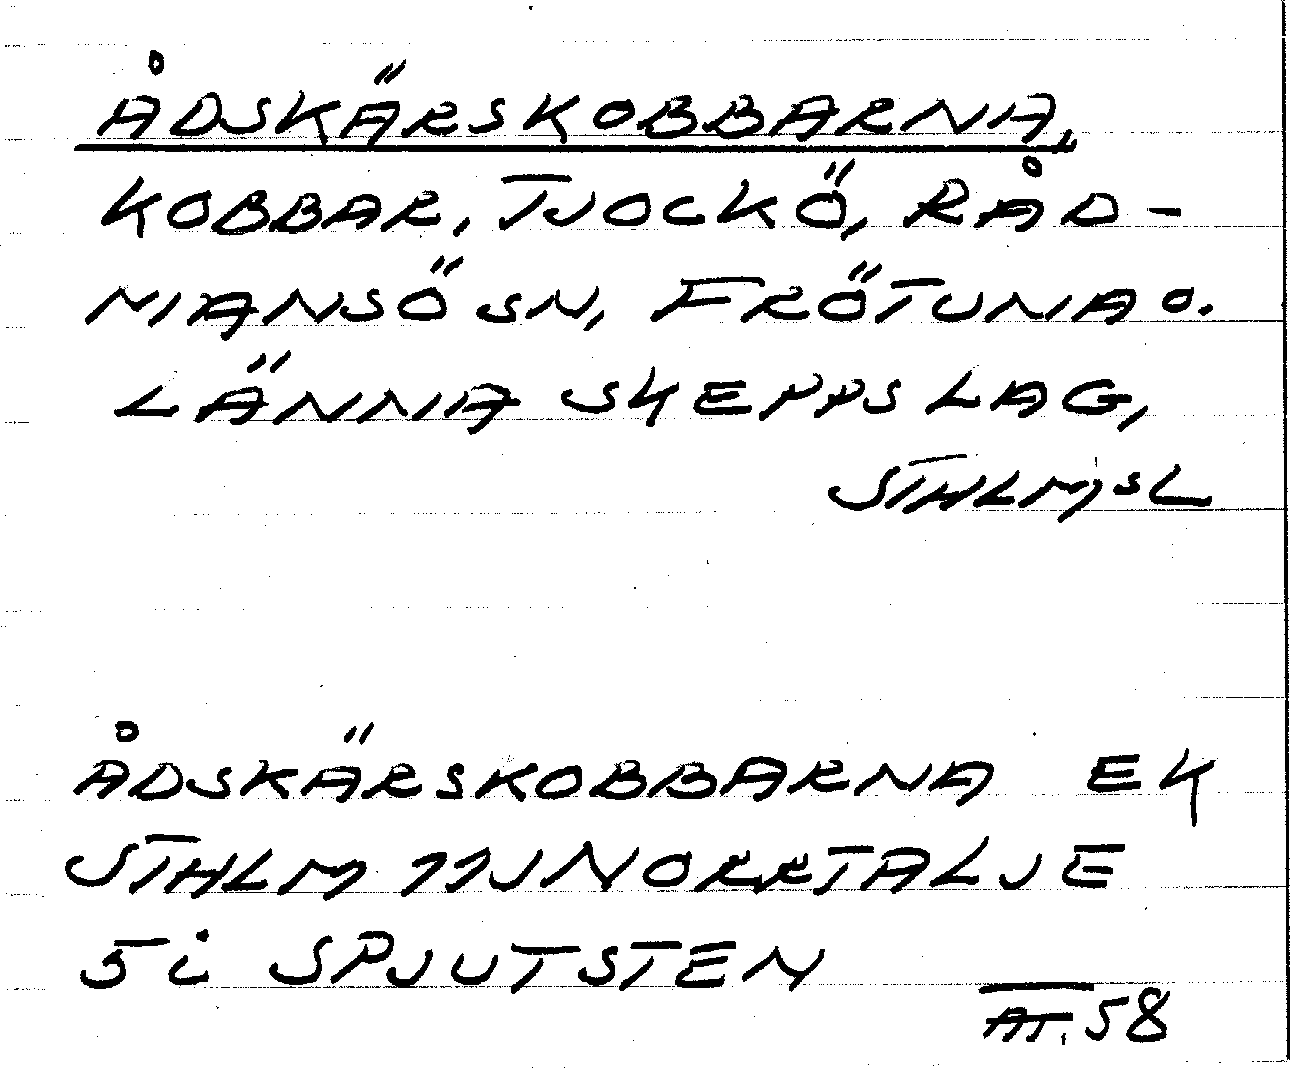 ÅDSKÄRSKOBBARNA,
KOBBAR, TJOCKÖ, RÅD-
MANSÖ SN, FRÖTUNA O.
LÄNNA SKEPPSLAG,
STHLMSL
ÅDSKÄRSKOBBARNA EK
STHLM 11J NORRTÄLJE
5i SPJUTSTEN
58